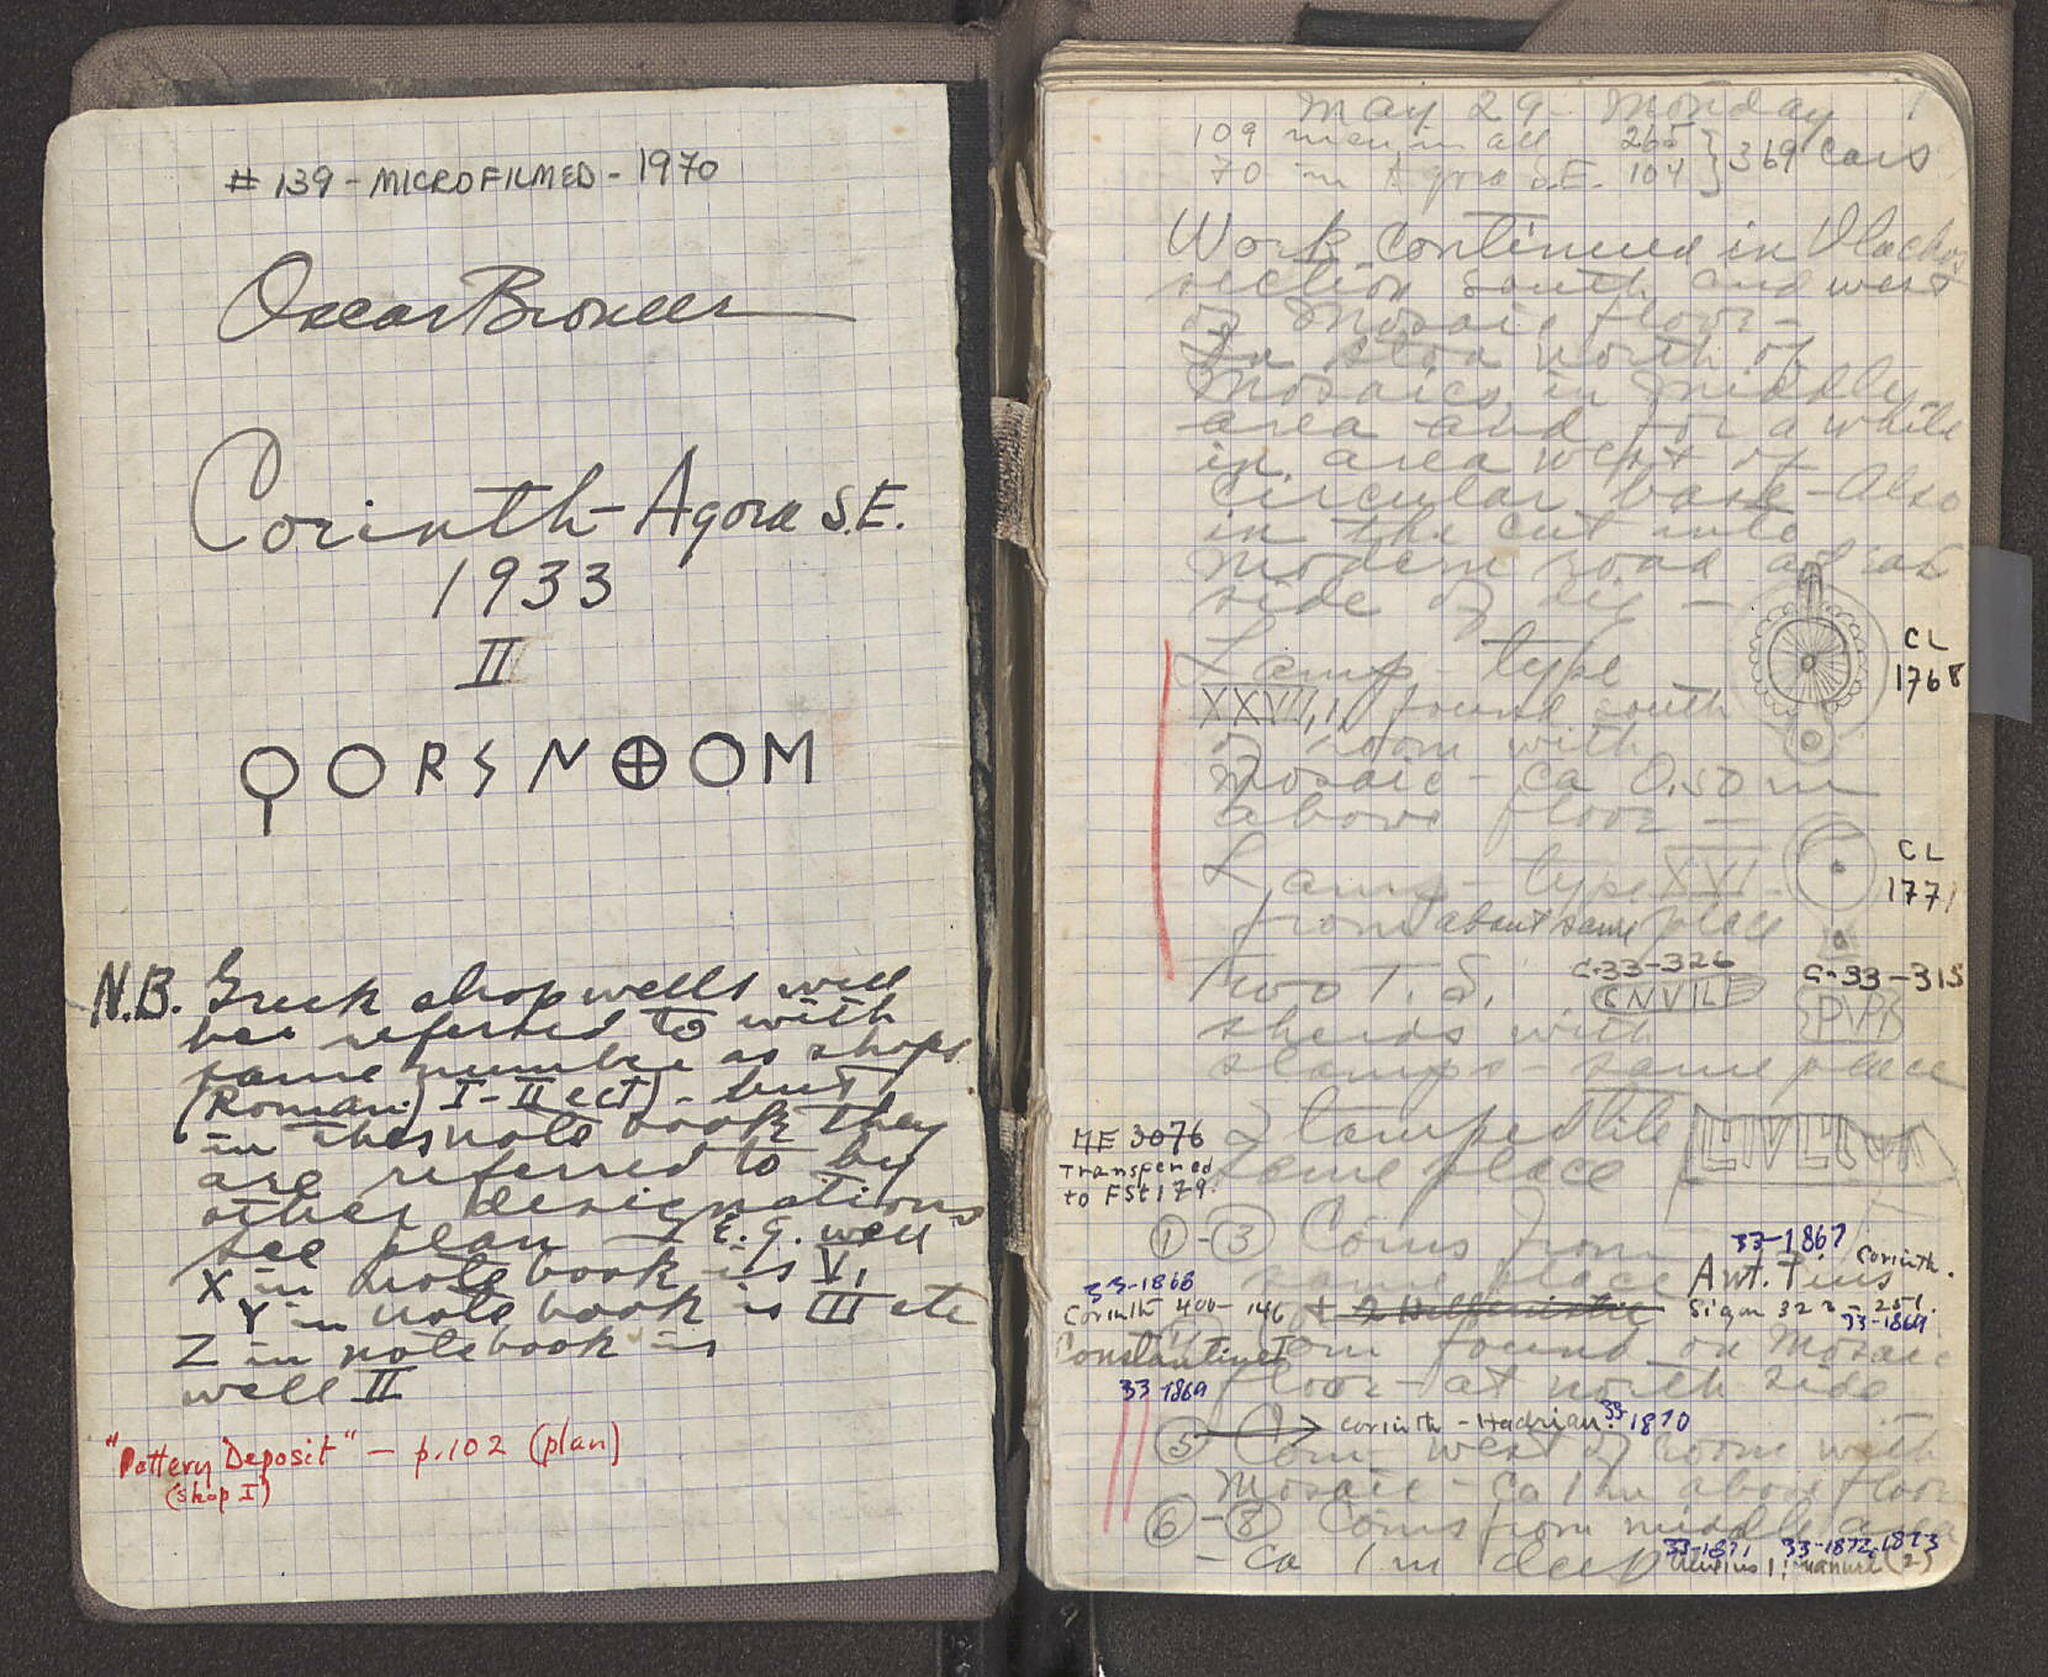 # 139 - MICROFILMED - 1970
Oscar Broneer
Corinth - Agora S.E.
1933
II
Ϙ O R S N ⊕ O M
N.B. Greek shop wells will
be referred to with
same number as shops
(Roman) I - II ect) - but
in this note book they
are referred to by
other designations
see plan E.g. well
X in note book is V,
Y in note book is III etc
Z in notebook is
well II
"Pottery Deposit" - p. 102 (plan)
(shop I)
May 29 - Monday 1
109 men in all 265 } 369 cars
70 in Agora S.E. 104
Work continued in Vlachos
section south and west
of mosaic floor -
In stoa north of
mosaics, in middle
area and for a while
in area west of
circular base - Also
in the cut into
modern road at
side of dig -
Lamp - type
XXVII, 1, found south
of room with
mosaic - ca 0.50 m
above floor -
CL
1768
Lamp - type XVI -
from about same place
CL
1771
Two T. S.
sherds with
stamps - same place
C-33-326
C-33-315
Stamped tile
same place
MF 3076
Transferred
to FSt 179.
① - ③ Coins from
same place
33-1867
Ant. Pius Corinth.
33-1868
Corinth 400 - 146 + 2 Hellenistic
33-1869
Coin found on Mosaic
Constantine I
floor - at north side
33 1869
→ Corinth - Hadrian. 33-1870
⑤ Coin west of room with
Mosaic - ca 1 m above floor
⑥ - ⑧ Coins from middle area
- ca 1 m deep
33-1871 33-1872, 1873